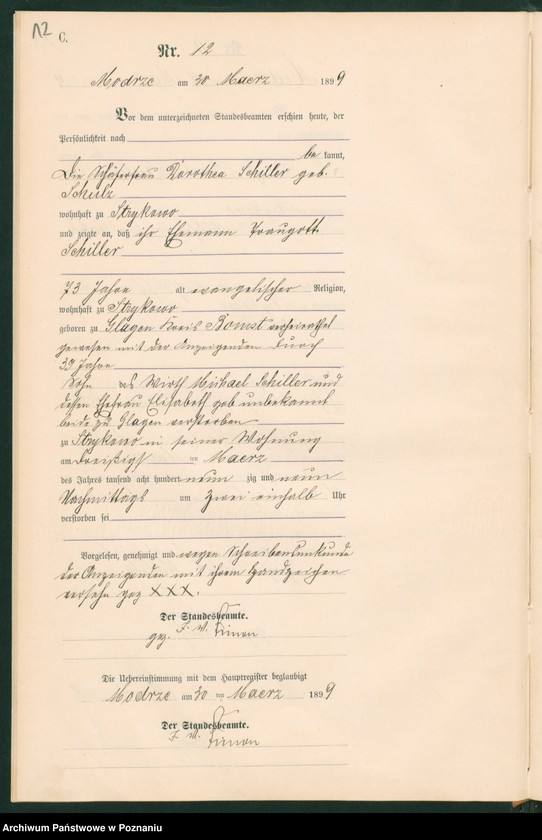 12
C.
Nr. 12
Modrze am 30 Maerz 1899
Vor dem unterzeichneten Standesbeamten erschien heute, der
Persönlichkeit nach
be kannt,
Die Schäferfrau Dorothea Schiller geb.
Schulz
wohnhaft zu Strykowo
und zeigte an, daß ihr Ehemann Traugott
Schiller
73 Jahre alt evangelischer Religion,
wohnhaft zu Strykowo
geboren zu Glagen Kreis Bomst verheirathet
gewesen mit der Anzeigenden durch
39 Jahre
Sohn des Wirth Michael Schiller und
dessen Ehefrau Elisabeth geb unbekannt
beide zu Glagen verstorben
zu Strykowo in seiner Wohnung
am dreißigst ten Maerz
des Jahres tausend acht hundert neun zig und neun
Nachmittags um zwei einhalb Uhr
verstorben sei
Vorgelesen, genehmigt und wegen Schreibensunkunde
der Anzeigenden mit ihrem Handzeichen
versehn gez XXX.
Der Standesbeamte.
gez. F. W. Simon
Die Uebereinstimmung mit dem Hauptregister beglaubigt
Modrze am 30 ten Maerz 1899
Der Standesbeamte.
F. W. Simon
Archiwum Państwowe w Poznaniu